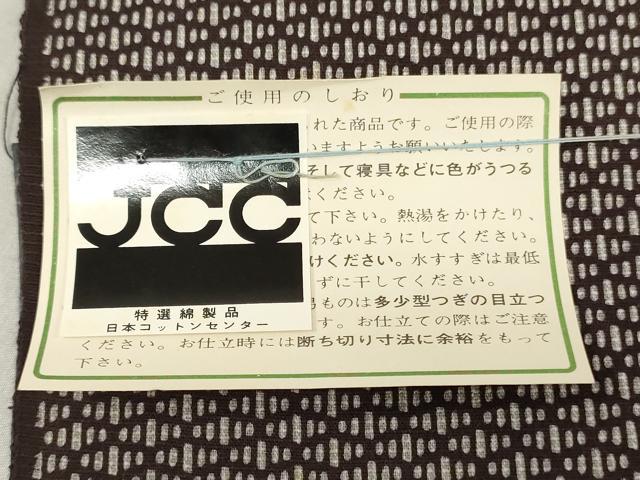 ご使用のしおり
れた商品です。ご使用の際
いますようお願いいたします。
そして寝具などに色がうつる
ください。
て下さい。熱湯をかけたり、
わないようにしてください。
けください。水すすぎは最低
ずに干してください。
ものは多少型つぎの目立つ
す。お仕立ての際はご注意
ください。お仕立時には断ち切り寸法に余裕をもって
下さい。
JCC
特選綿製品
日本コットンセンター